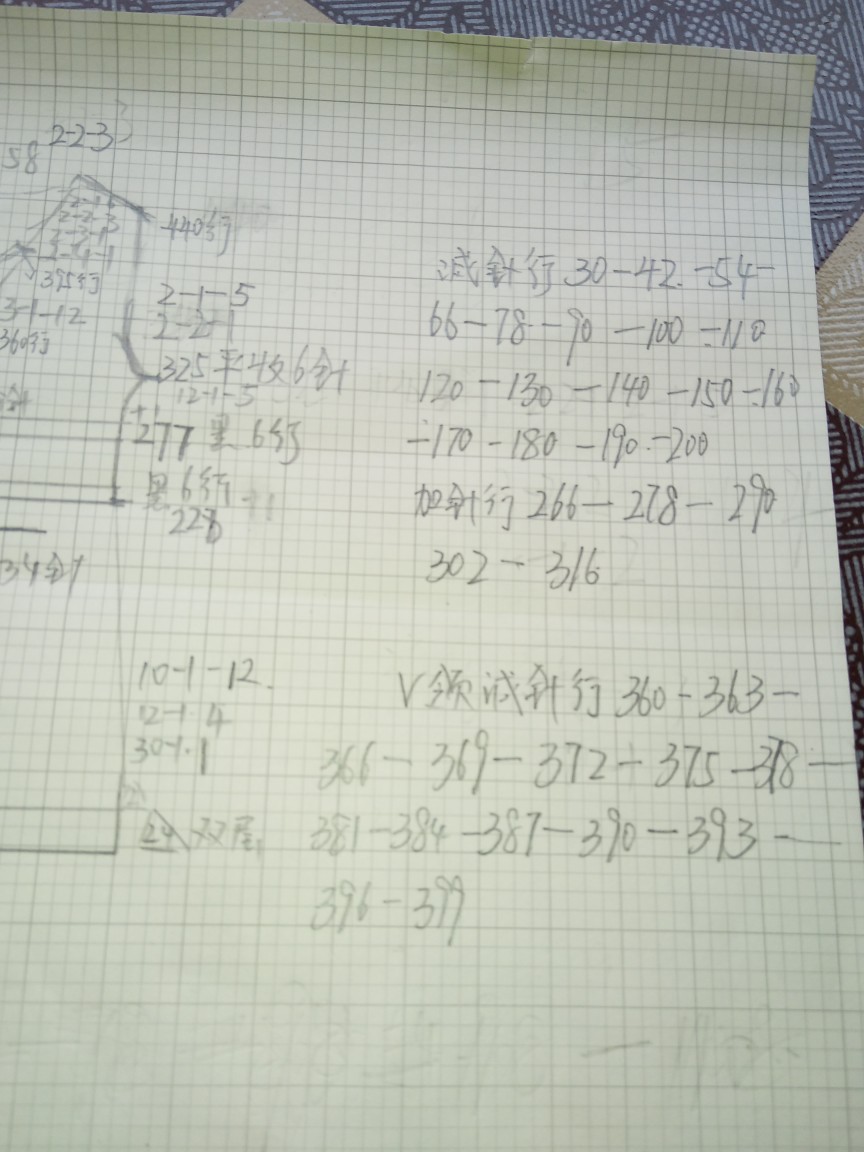 2-2-3
58
440行
2-2-3
375行
3-1-12
360行
2-1-5
2-2-1
325平收6针
12-1-5
277 黑6行
黑6行
228
34针
减针行30-42-54-
66-78-90-100-110
120-130-140-150-160
-170-180-190-200
加针行266-278-290
302-316
10-1-12
12-1-4
30-1-1
24 双层
V领减针行360-363-
366-369-372-375-378-
381-384-387-390-393-
396-399